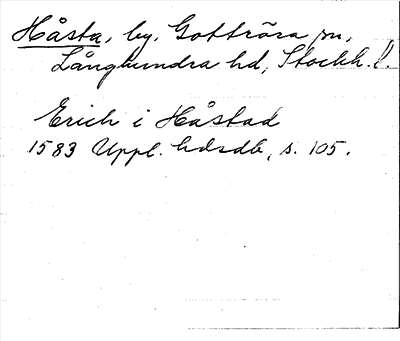 Håsta, by, Gottröra sn,
Långhundra hd, Stockh. l.
Erich i Håstad
1583 Uppl. hdsdb, s. 105.